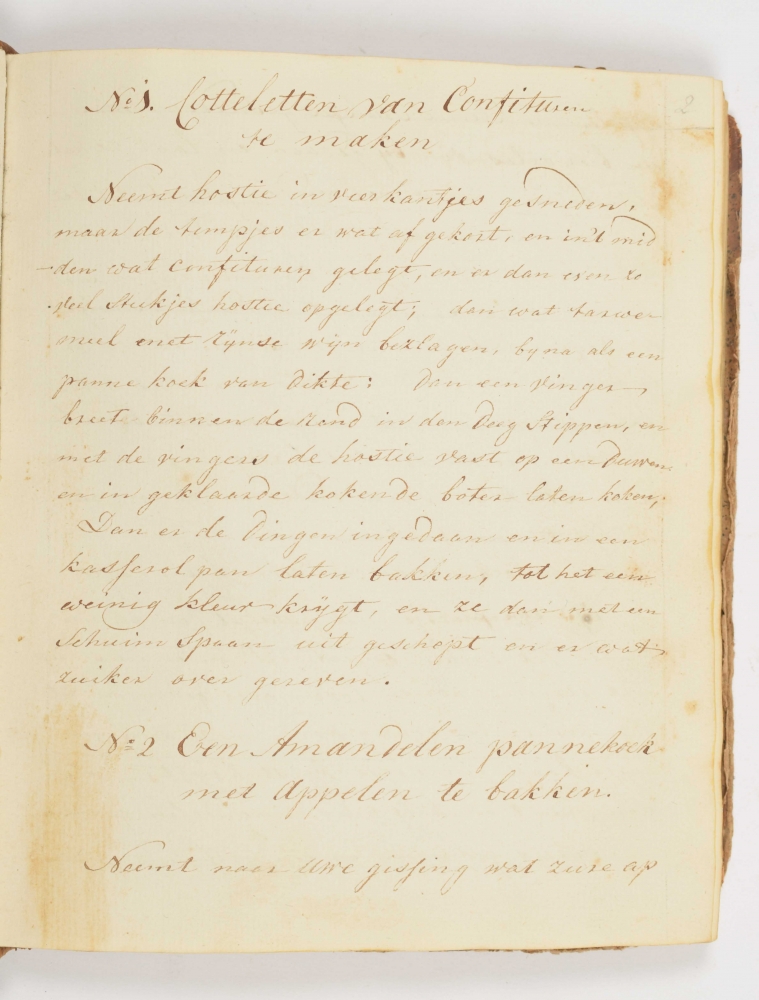 2
No 1. Cotteletten van Confituren
te maken
Neemt hostie in vierkantjes gesneden,
maar de tempjes er wat af gekort, en in't mid
-den wat confituren gelegt, en er dan even zo
veel stukjes hostie opgelegt; dan wat tarwe
meel met Rÿnse wÿn beslagen, byna als een
panne koek van dikte: Dan een vinger
breet binnen de rand in den deeg stippen, en
met de vingers de hostie vast op een duwen
en in geklaarde kokende boter laten koken,
Dan er de dingen ingedaan en in een
kasserol pan laten bakken, tot het een
weinig kleur krÿgt, en ze dan met een
Schuim Spaan uit geschept en er wat
zuiker over gereven.
No 2 Een Amandelen pannekoek
met Appelen te bakken.
Neemt naar uwe gissing wat zure ap